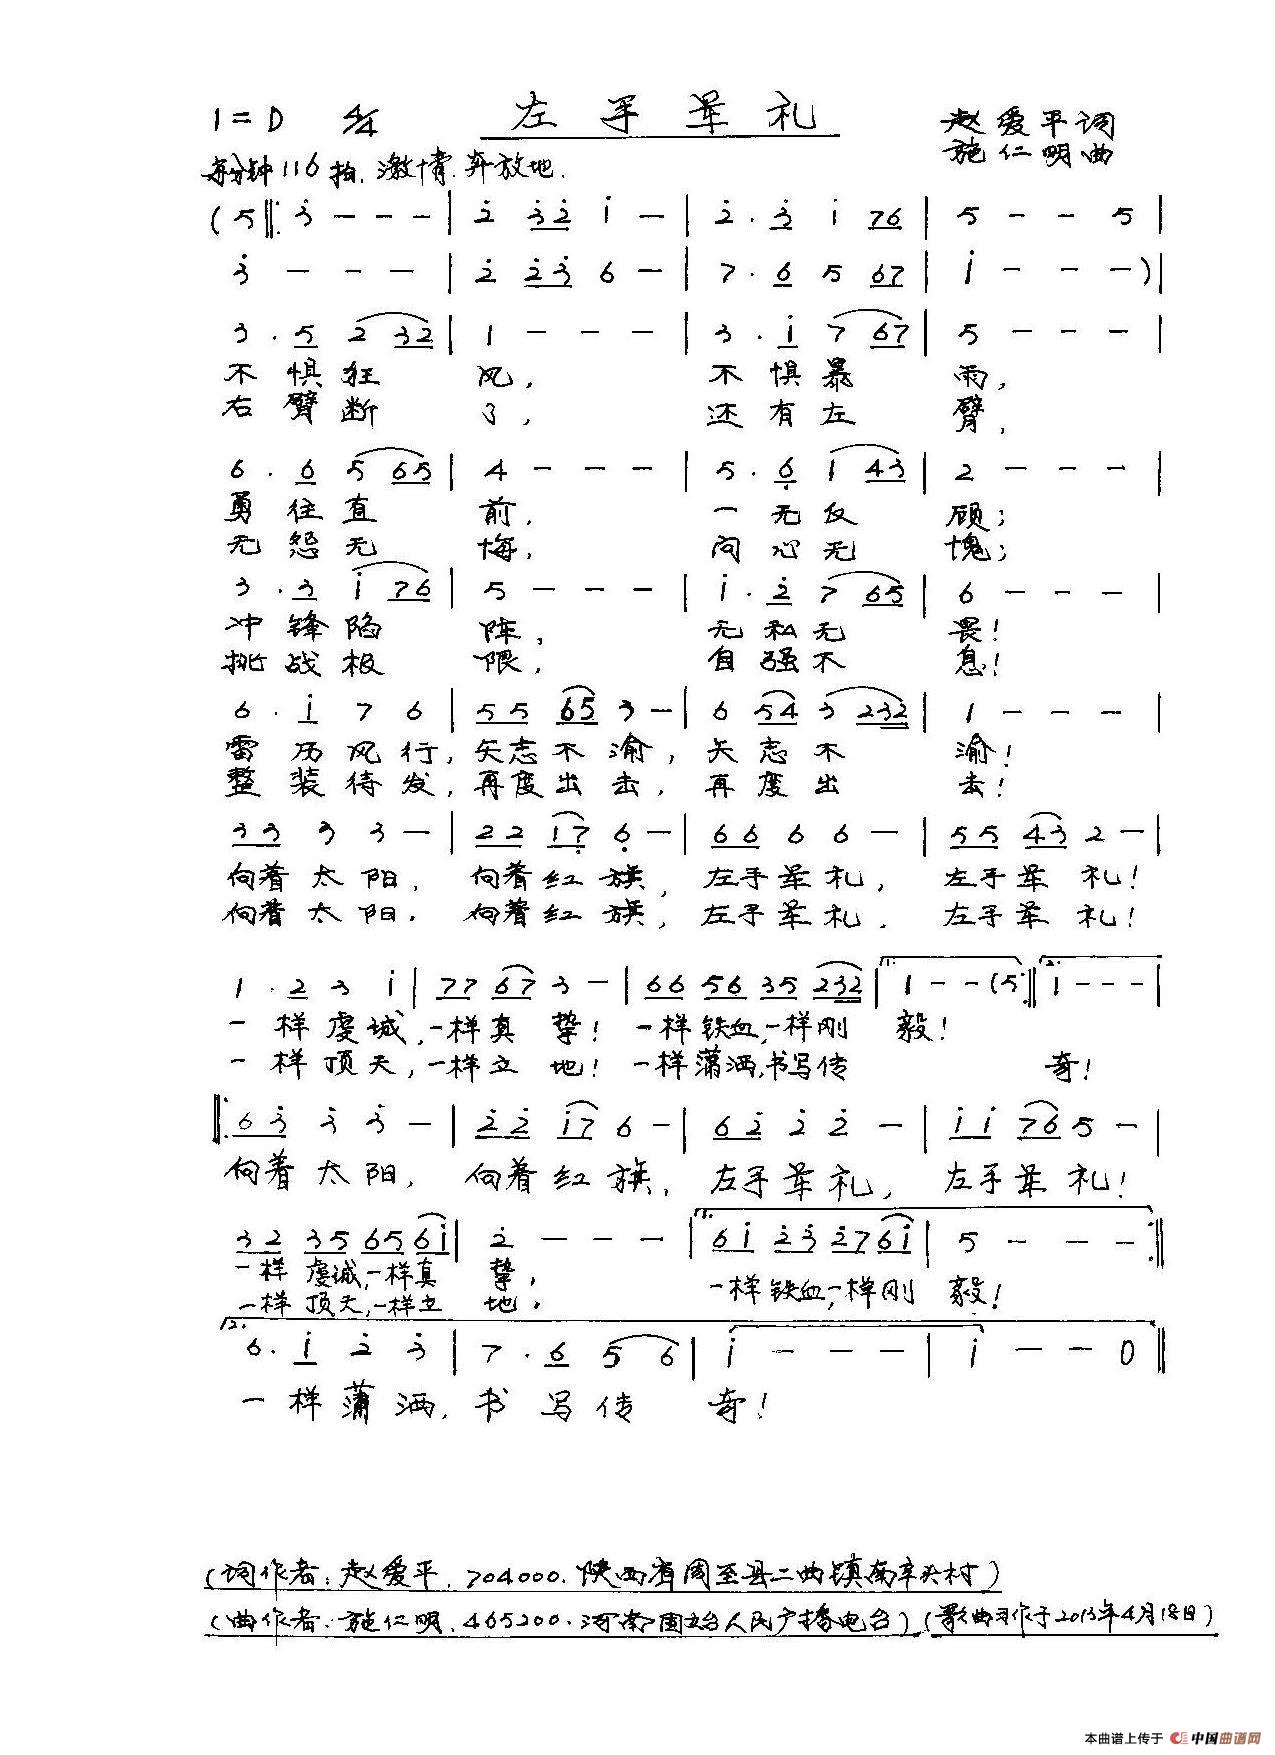 1=D 4/4 左手军礼 赵爱平词
施仁明曲
每分钟116拍.激情.奔放地.
(5 ‖: 3̇ - - - | 2̇ 3̇2̇ 1̇ - | 2̇ . 3̇ 1̇ 76 | 5 - - 5 |
3̇ - - - | 2̇ 2̇3̇ 6 - | 7 . 6 5 67 | 1̇ - - - ) |
3 . 5 2 32 | 1 - - - | 3 . 1̇ 7 67 | 5 - - - |
不惧狂 风, 不惧暴 雨,
右臂断 了, 还有左 臂,
6 . 6 5 65 | 4 - - - | 5 . 6̣ 1 43 | 2 - - - |
勇往直 前, 一无反 顾;
无怨无 悔, 问心无 愧;
3 . 3 1̇ 76 | 5 - - - | 1̇ . 2̇ 7 65 | 6 - - - |
冲锋陷 阵, 无私无 畏!
挑战极 限, 自强不 息!
6 . 1̇ 7 6 | 55 65 3 - | 6 54 3 232 | 1 - - - |
雷厉风行,矢志不渝,矢志不 渝!
整装待发,再度出击,再度出 击!
33 3 3 - | 22 17̣ 6̣ - | 66 6 6 - | 55 43 2 - |
向着太阳, 向着红旗, 左手军礼, 左手军礼!
向着太阳. 向着红旗, 左手军礼. 左手军礼!
1 . 2 3 1̇ | 77 67 3 - | 66 56 35 232 | 1. 1 - - (5 :‖ 2. 1 - - - |
一样虔诚,一样真挚! 一样铁血,一样刚 毅!
一样顶天,一样立地! 一样潇洒,书写传 奇!
‖: 63̇ 3̇ 3̇ - | 2̇2̇ 1̇7 6 - | 62̇ 2̇ 2̇ - | 1̇1̇ 76 5 - |
向着太阳, 向着红旗, 左手军礼, 左手军礼!
32 35 65 61̇ | 2̇ - - - | 1. 61̇ 2̇3̇ 2̇7 61̇ | 5 - - - :‖
一样虔诚,一样真 挚, 一样铁血,一样刚 毅!
一样顶天,一样立 地.
2. 6 . 1̇ 2̇ 3̇ | 7 . 6 5 6 | 1̇ - - - | 1̇ - - 0 ‖
一样潇洒,书写传 奇!
(词作者:赵爱平.704000.陕西省周至县二曲镇南辛头村)
(曲作者:施仁明.465200.河南固始人民广播电台)(歌曲习作于2013年4月18日)
本曲谱上传于 中国曲谱网